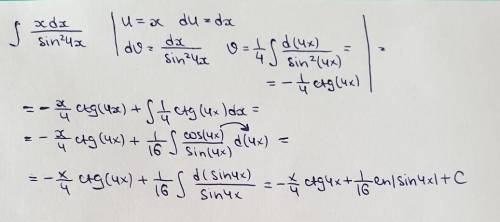 ∫ xdx / sin²4x | u = x du = dx
dv = dx / sin²4x v = 1/4 ∫ d(4x) / sin²(4x) = | =
= - 1/4 ctg(4x)
= - x/4 ctg(4x) + ∫ 1/4 ctg(4x) dx =
= - x/4 ctg(4x) + 1/16 ∫ cos(4x) / sin(4x) d(4x) =
= - x/4 ctg(4x) + 1/16 ∫ d(sin4x) / sin4x = - x/4 ctg4x + 1/16 ln|sin4x| + C